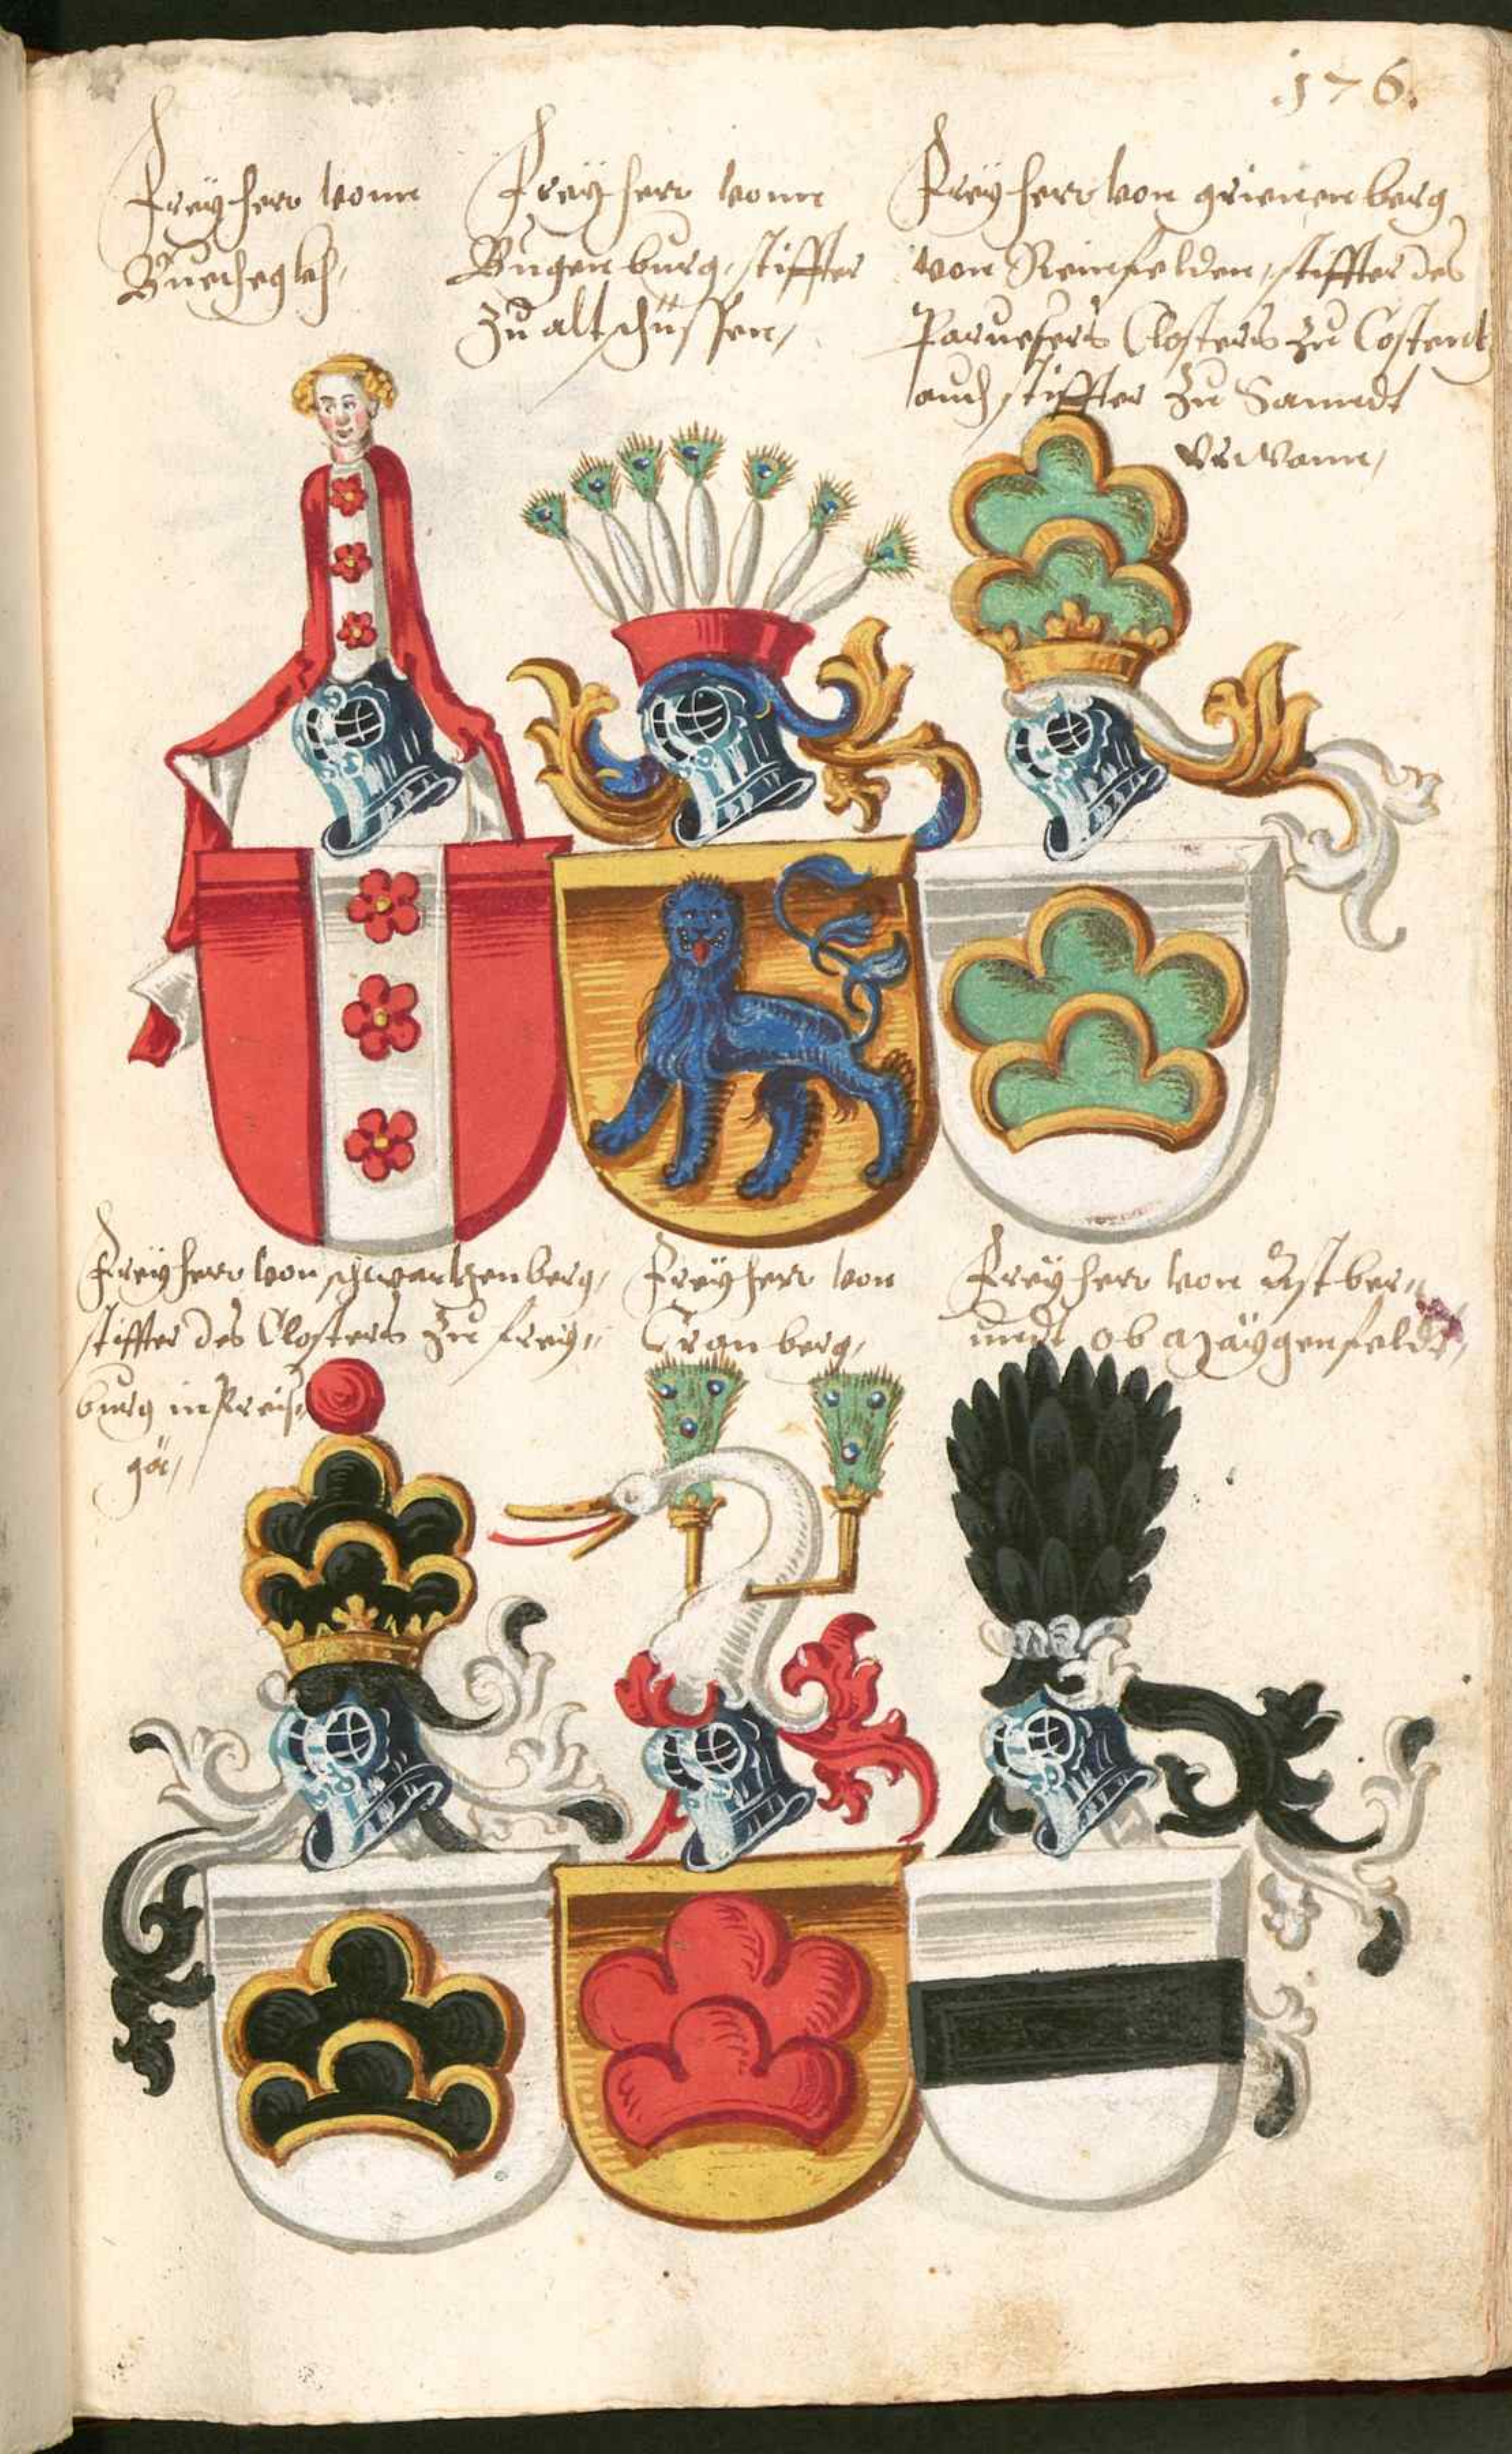 .176.
Freyherr vonn
Buechegkh,
Freyherr vonn
Bugenburg, stiffter
zu altschüssen,
Freyherr von grienenberg
von Reinfelden, stiffter des
Closters zu Costentz
auch stiffter zu Sannct
Freyherr von schwartzenberg,
stiffter des Closters zu freÿ„
burg in Preiß„
gö,
Freyherr von
Cranberg,
Freyherr von Astber„
ob Mäygenfeldt,